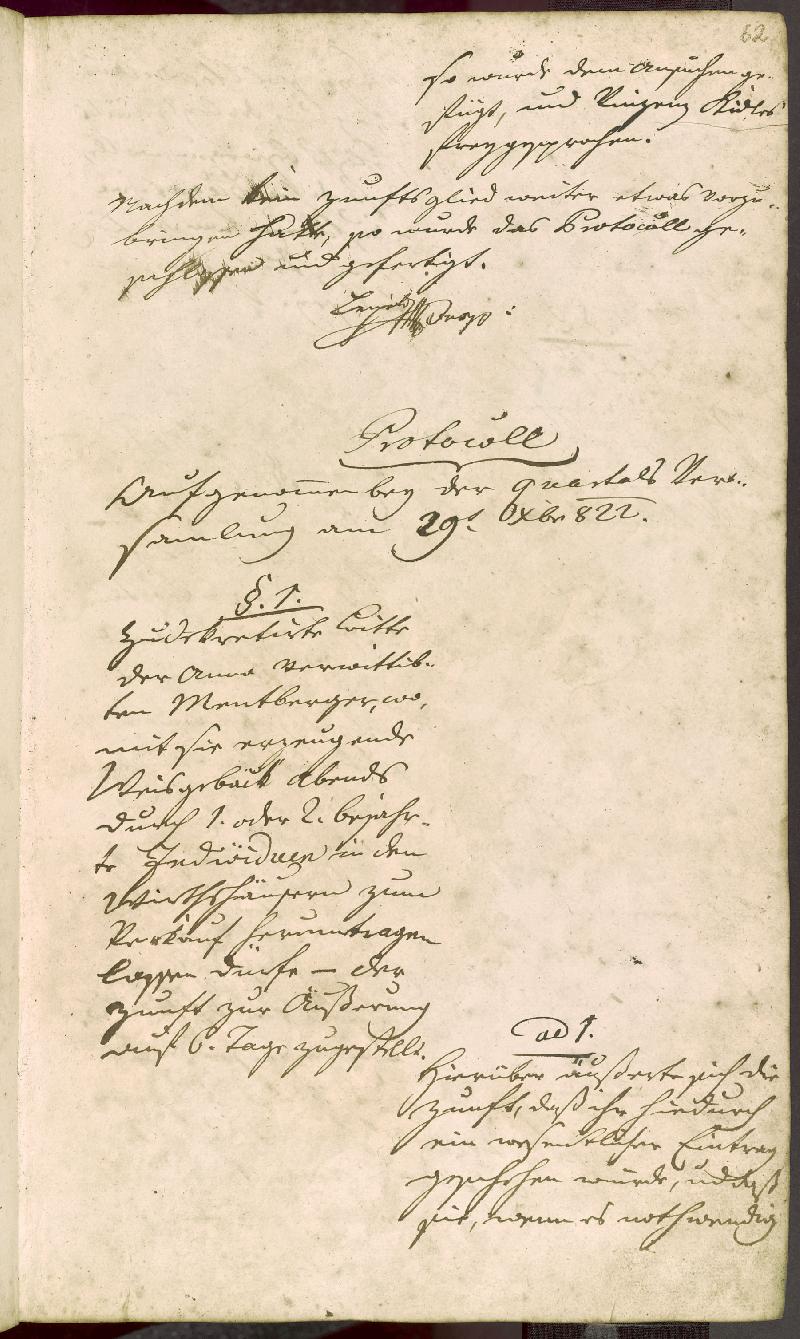 62
so wurde dem Ansuchen ge-
fügt, und Vinzenz Kidles
freygesprochen.
Nachdem kein Zunftsglied weiter etwas vorzu-
bringen hatte, so wurde das Protocoll ge-
schlossen und gefertigt.
Protocoll
Aufgenommen bey der Quartals Ver-
samlung am 29t Xbr 822.
§. 1.
Zudekretirte Bitte
der Anna verwittib-
ten Mentberger, wo-
mit sie erzeugende
Weisgebäck Abends
durch 1. oder 2. bejahr-
te Individuen in den
Wirthshäusern zum
Verkauf herumtragen
lassen dürfe – der
Zunft zur Äußerung
auf 6. Tage zugestellt.
ad 1.
Hierüber äußerte sich die
Zunft, daß ihr hiedurch
ein wesentlicher Eintrag
geschehen würde, und daß
sie, wenn es nothwendig